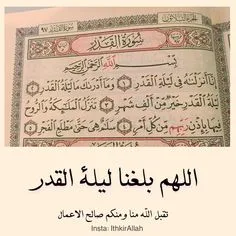 سُورَةُ الْقَدْرِ
بِسْمِ اللَّهِ الرَّحْمَٰنِ الرَّحِيمِ
إِنَّا أَنزَلْنَٰهُ فِي لَيْلَةِ الْقَدْرِ ١ وَمَا أَدْرَىٰكَ مَا لَيْلَةُ الْقَدْرِ ٢
لَيْلَةُ الْقَدْرِ خَيْرٌ مِّنْ أَلْفِ شَهْرٍ ٣ تَنَزَّلُ الْمَلَٰئِكَةُ وَالرُّوحُ
فِيهَا بِإِذْنِ رَبِّهِم مِّن كُلِّ أَمْرٍ ٤ سَلَٰمٌ هِيَ حَتَّىٰ مَطْلَعِ الْفَجْرِ ٥
اللهم بلغنا ليلة القدر
تقبل الله منا ومنكم صالح الاعمال
Insta: IthkirAllah